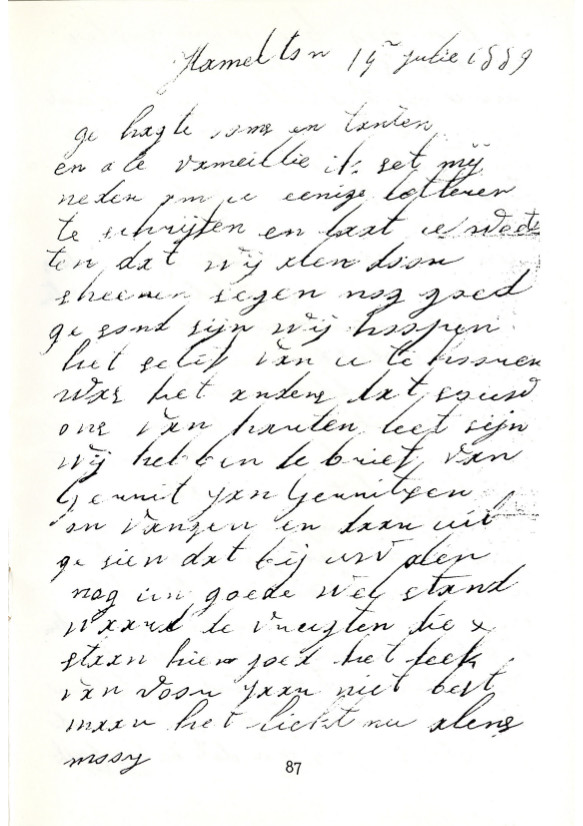 Hamelton 19 julie 1889
ge hagte ooms en tanten
en ale vameillie ik set mij
neder om u eenige letteren
te schrijften en laat u wede
ten dat wij alen door
sheeren segen nog goed
ge sond sijn wij hoopen
het selif van u te hooren
was het anders dat souw
ons van harten leet sijn
wij hebben de brief van
Gerrit jan Gerritsen
on vangen en daar uit
ge sien dat bij uw alen
nog in goede wel stand
waard de vrugten die
staan hier goed het leek
van voor jaar niet best
maar het liekt nu alens
mooy
87